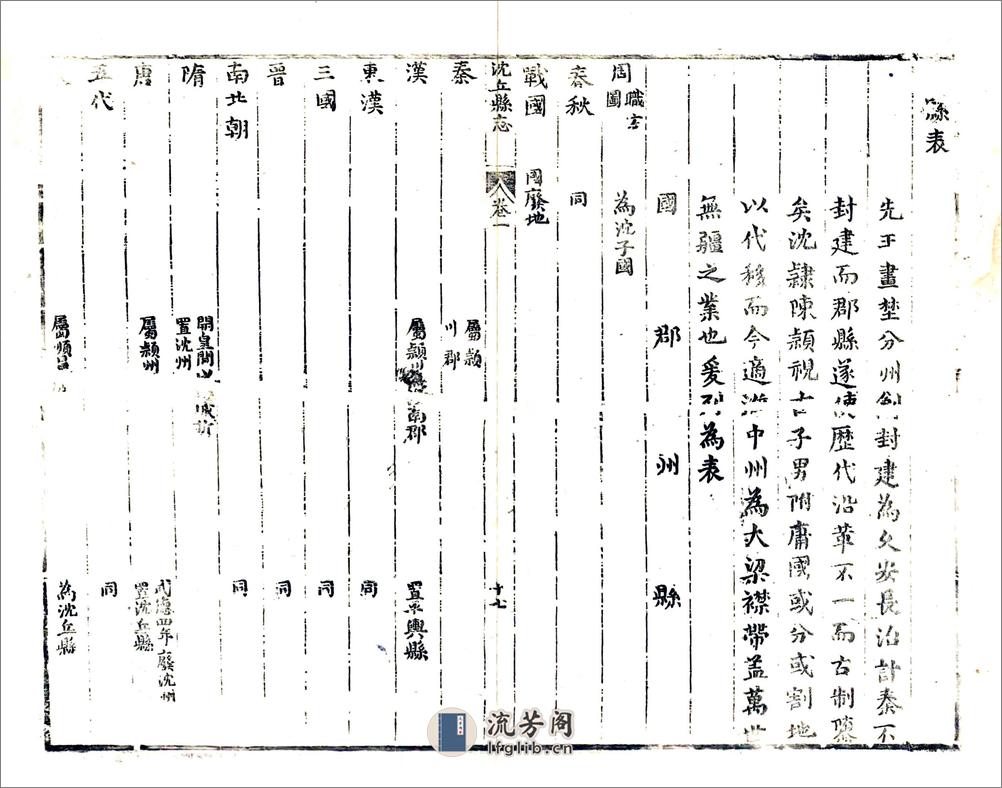 縣表
先王畫埜分州剏封建為久安長治計秦不
封建而郡縣遂使歷代沿革不一而古制隳
矣沈隷陳頴視古子男附庸國或分或割地
以代移而今適游中州為大梁襟帶盖萬世
無疆之業也爰列為表
國 郡 州 縣
周職方圖 為沈子國
春秋 同
戰國 國廢地
沈丘縣志 卷一 十七
秦 屬頴川郡
漢 屬頴川 南郡 置平輿縣
東漢 同
三國 同
晉 同
南北朝 同
隋 開皇間 置沈州
唐 屬頴州 武德四年廢沈州置沈丘縣
五代 同
屬順昌 為沈丘縣
流芳阁
lfglib.cn